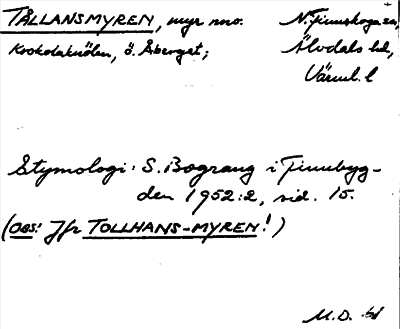 TÅLLANSMYREN, myr nno. N. Finnskoga sn,
Krokolakullen, ö. Åberget; Älvdals hd,
Värml. l
Etymologi: S. Bograng i Finnbyg-
den 1952:2, sid. 15.
(OBS! Jfr TOLLHANS-MYREN!)
M.D.